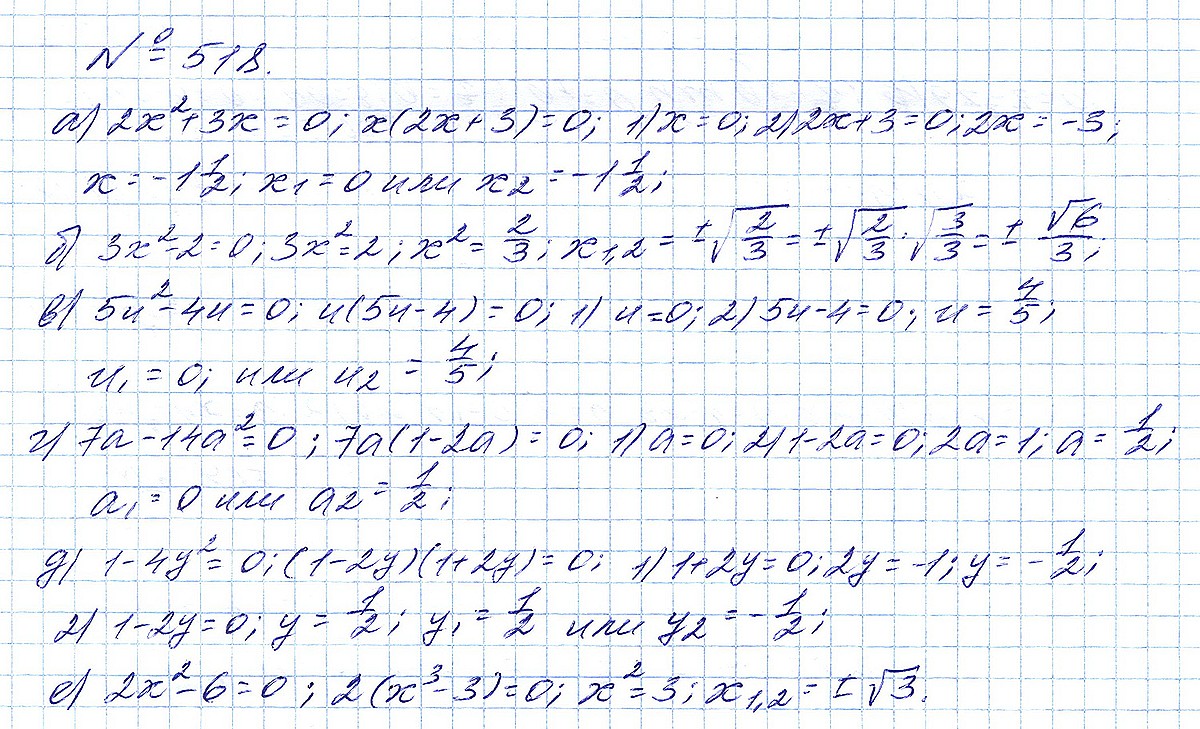 № 518.
а) 2x²+3x=0; x(2x+3)=0; 1) x=0; 2) 2x+3=0; 2x=-3;
x=-1 1/2; x₁=0 или x₂=-1 1/2;
б) 3x²-2=0; 3x²=2; x²=2/3; x₁,₂=±√(2/3)=±√(2/3)·√(3/3)=±√6/3;
в) 5u²-4u=0; u(5u-4)=0; 1) u=0; 2) 5u-4=0; u=4/5;
u₁=0; или u₂=4/5;
г) 7a-14a²=0; 7a(1-2a)=0; 1) a=0; 2) 1-2a=0; 2a=1; a=1/2;
a₁=0 или a₂=1/2;
д) 1-4y²=0; (1-2y)(1+2y)=0; 1) 1+2y=0; 2y=-1; y=-1/2;
2) 1-2y=0; y=1/2; y₁=1/2 или y₂=-1/2;
е) 2x²-6=0; 2(x³-3)=0; x²=3; x₁,₂=±√3.